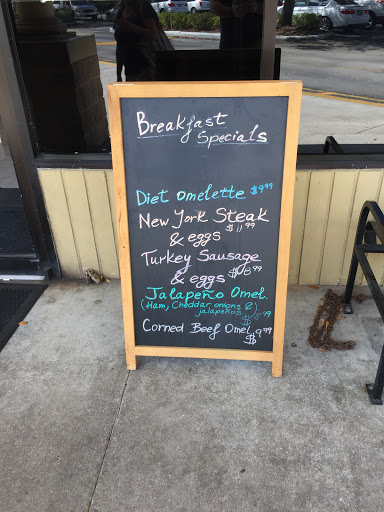 Breakfast
Specials
Diet omelette $9.99
New York Steak
& eggs $11.99
Turkey Sausage
& eggs $8.99
Jalapeño Omel.
(Ham, Cheddar onions &)
jalapeños $8.99
Corned Beef Omel.
$9.99